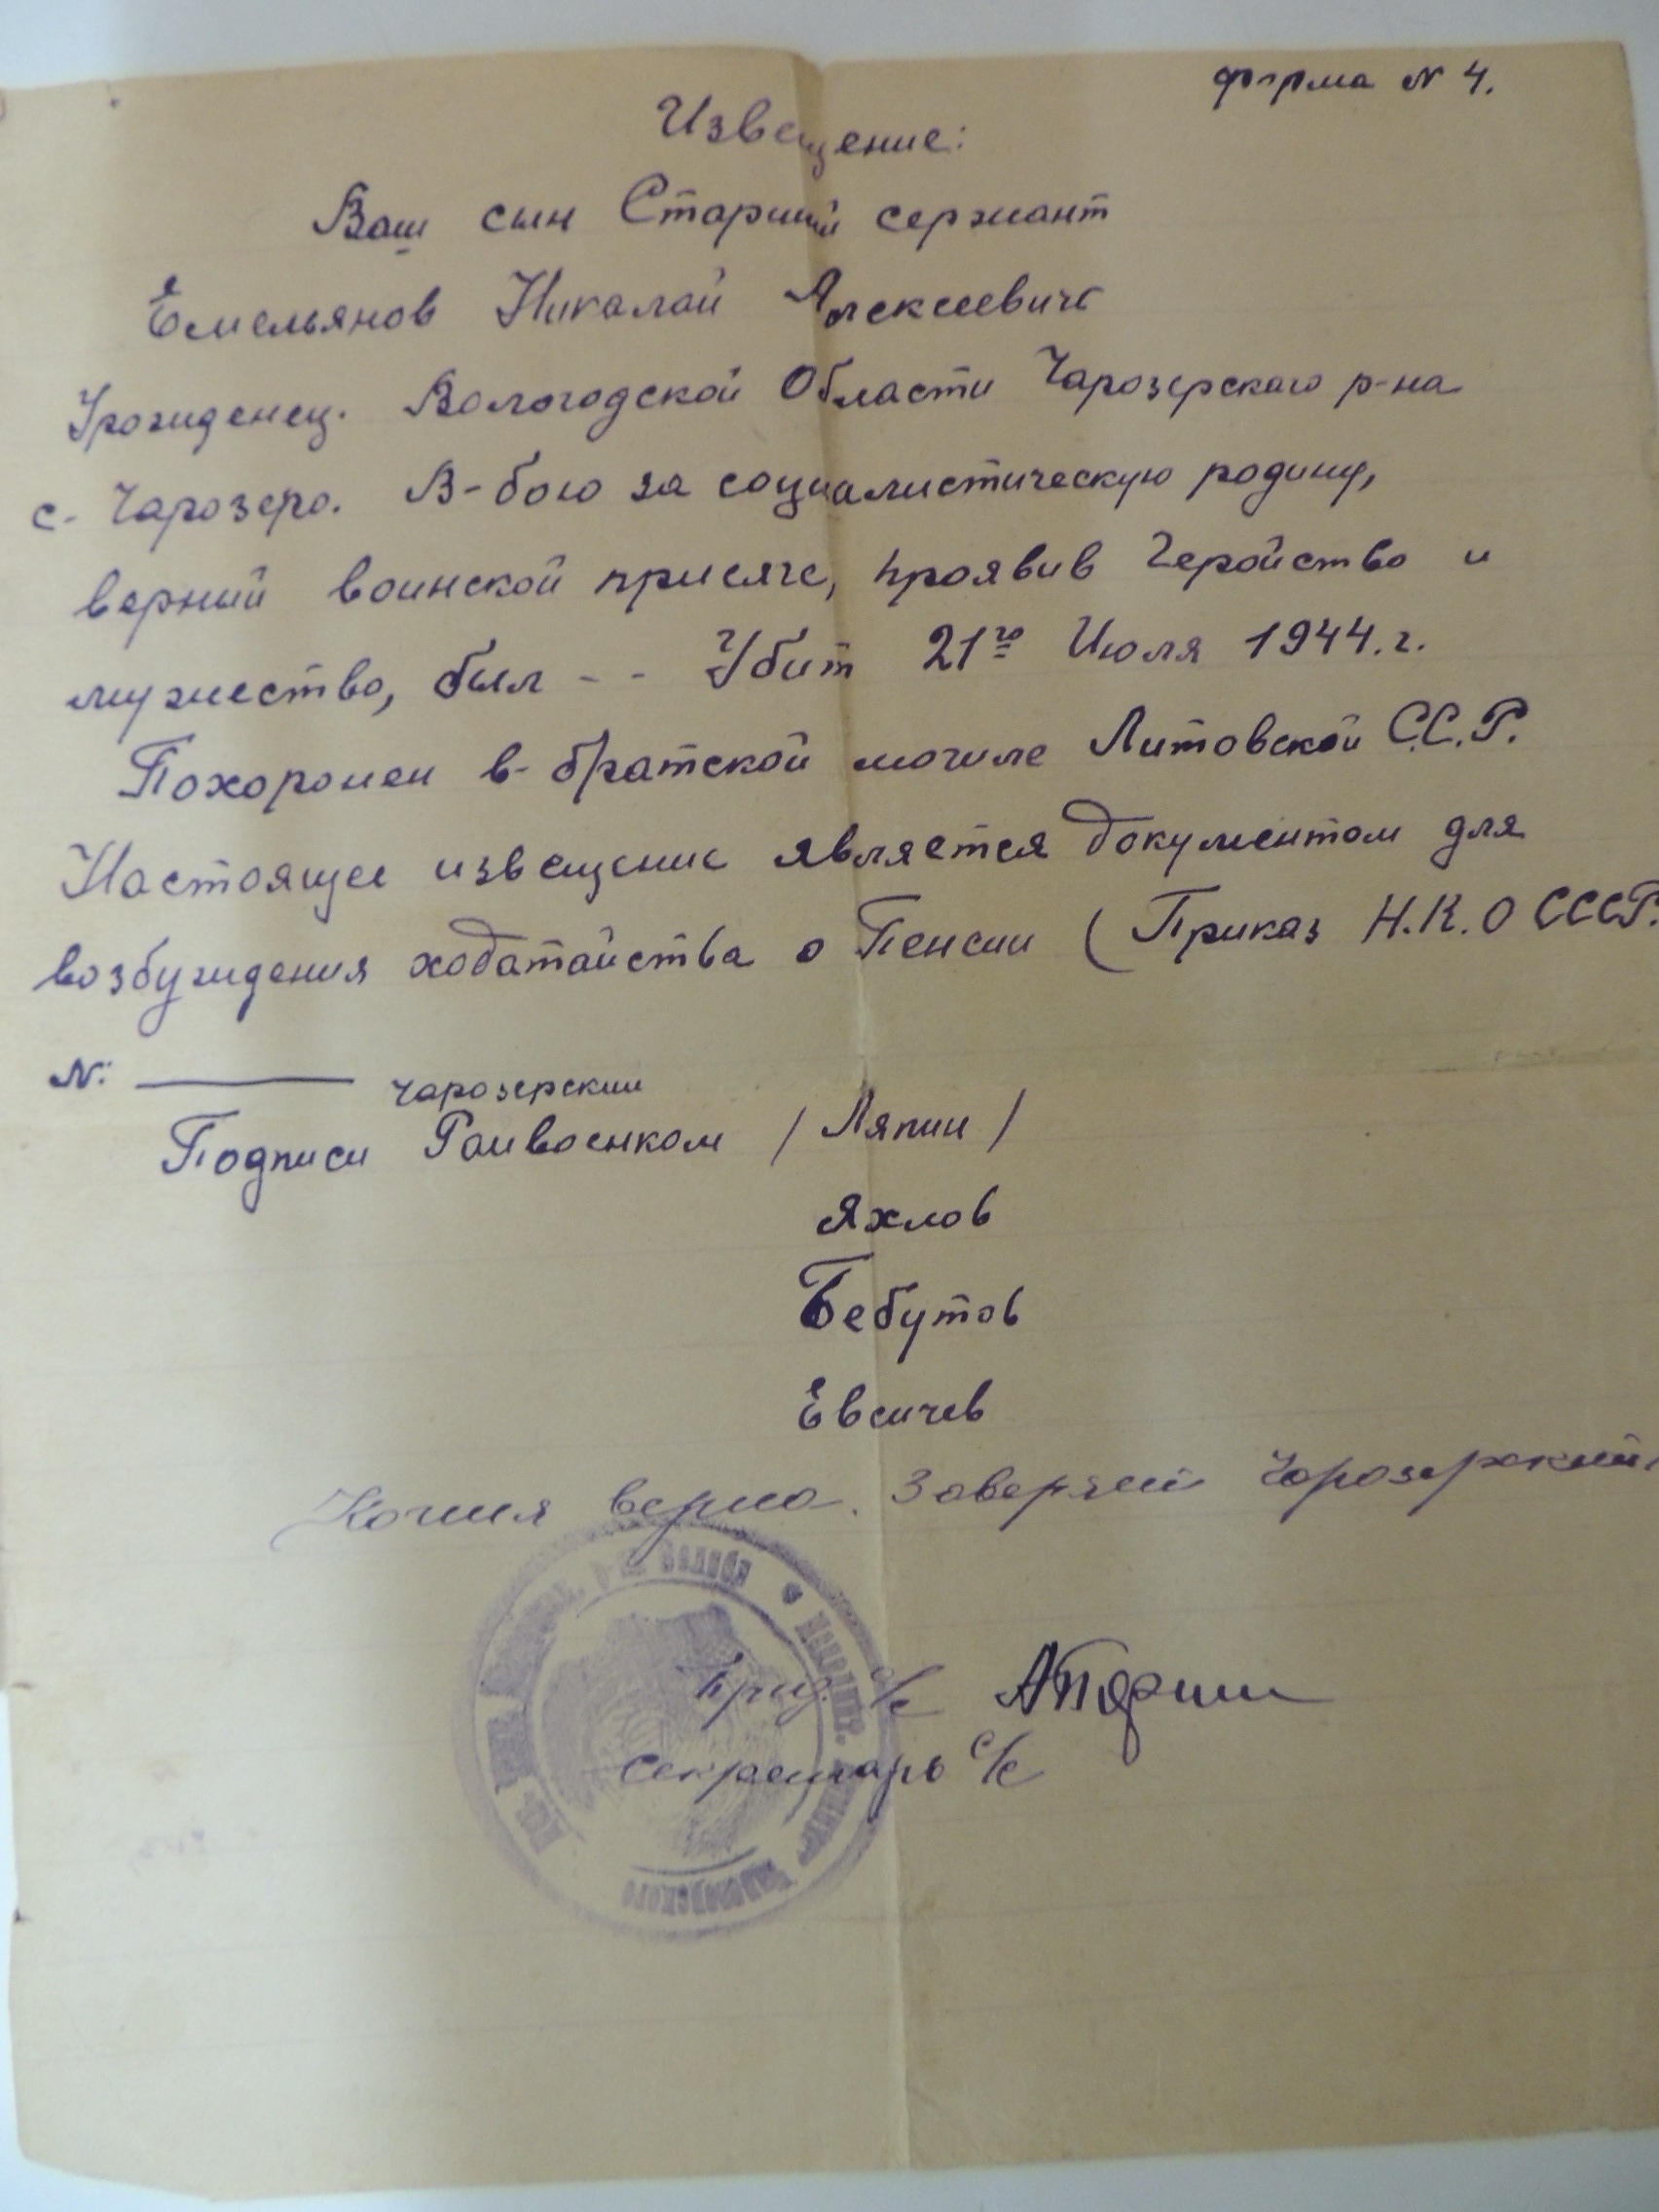 форма № 4.
Извещение:
Ваш сын Старший сержант
Емельянов Николай Алексеевич
Урожденец. Вологодской Области Чарозерского р-на
с- Чарозеро. В-бою за социалистическую родину,
верный воинской присяге, проявив геройство и
мужество, был - - Убит 21го Июля 1944.г.
Похоронен в-братской могиле Литовской С.С.Р.
Настоящее извещение является документом для
возбуждения ходатайства о Пенсии ( Приказ Н.К.О СССР.
№: Чарозерский
Подписи Райвоенком / Ляпин /
Яхлов
Бебутов
Евсичев
Копия верна. Заверяет Чарозерский
с/с
секретарь с/с